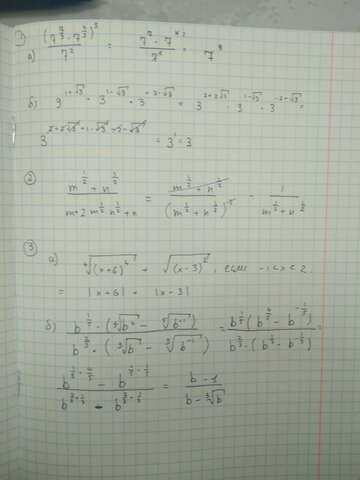 1) (7^{2/3} · 7^{2/3})^3 / 7^2 = 7^7 · 7^{2} / 7^2 = 7^9
а)
б) 9^{1+√3} · 3^{1-√3} · 3^{-2-√3} = 3^{2+2√3} · 3^{1-√3} · 3^{-2-√3} =
3^{2+2√3+1-√3-2-√3} = 3^1 = 3
2) (m^{1/2} + n^{1/2}) / (m + 2 m^{1/2} n^{1/2} + n) = (m^{1/2} + n^{1/2}) / (m^{1/2} + n^{1/2})^2 = 1 / (m^{1/2} + n^{1/2})
3) а) ⁴√(x+6)^4 + √(x-3)^2, если -1<x<2
= |x+6| + |x-3|
б) b^{1/5} · (⁵√b^4 - ⁵√b^{-1}) / b^{2/3} · (³√b - ³√b^{-1}) = b^{1/5}(b^{4/5} - b^{-1/5}) / b^{2/3} · (b^{1/3} - b^{-1/3}) =
b^{1/5+4/5} - b^{1/5-1/5} / b^{2/3+1/3} - b^{2/3-1/3} = b - 1 / b - ³√b